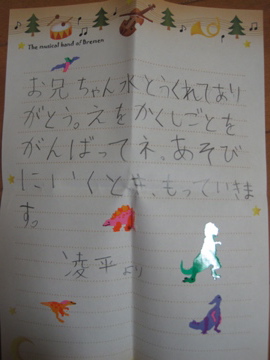 The musical band of Bremen
お兄ちゃん水とうくれてあり
がとう。えをかくしごとを
がんばってネ、あそび
にいくとき、もっていきま
す。
凌平より